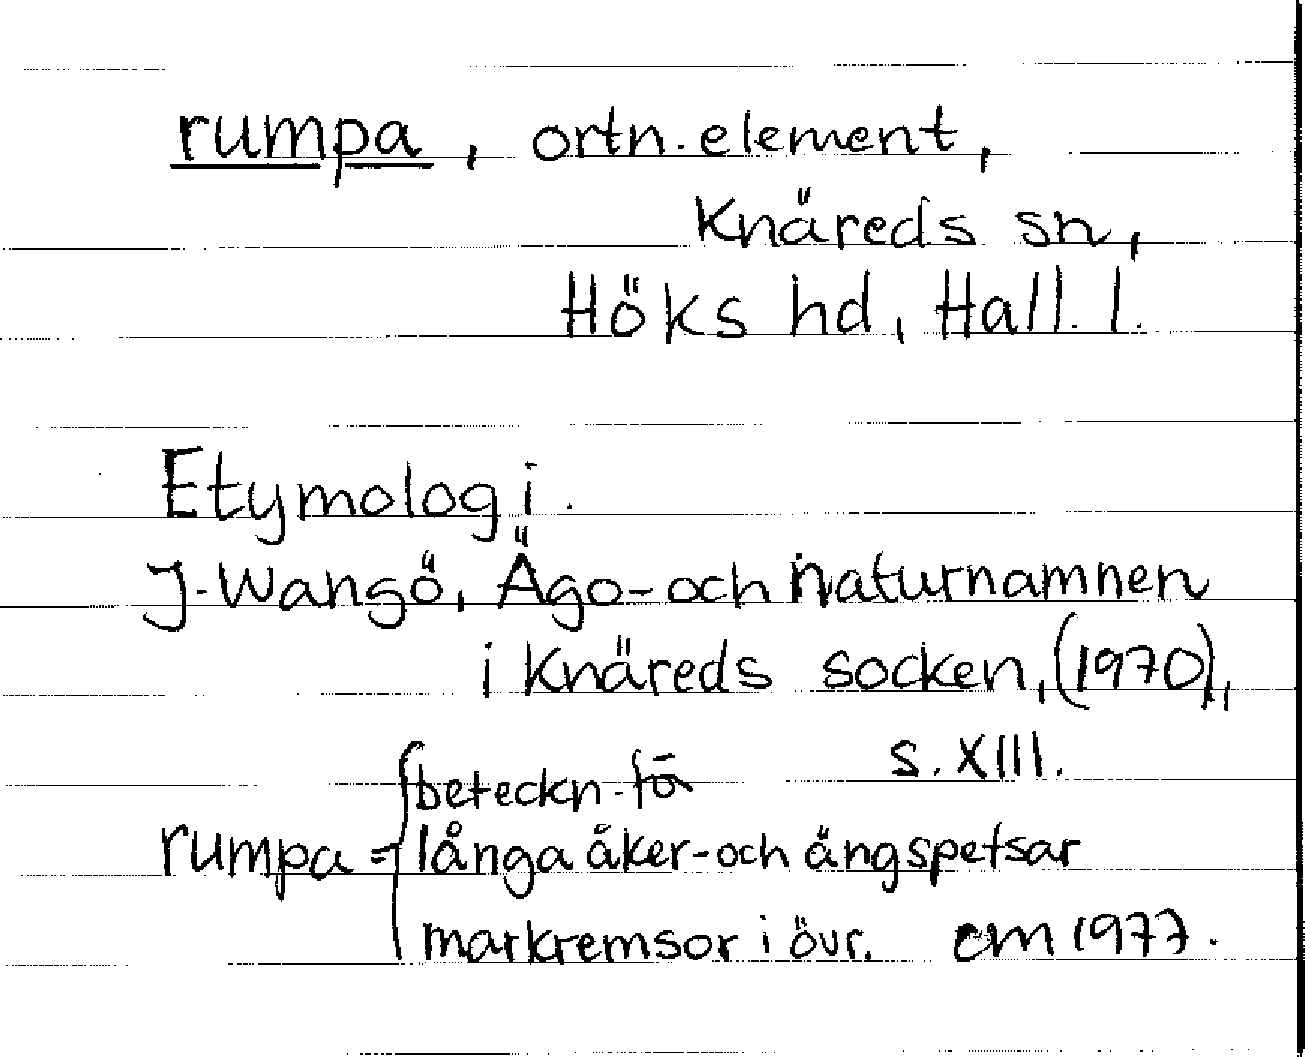 rumpa, ortn. element,
Knäreds sn,
Höks hd, Hall. l.
Etymologi.
J. Wangö, Ägo- och naturnamnen
i Knäreds socken, (1970),
s. XIII.
beteckn. fö
rumpa = långa åker- och ängspetsar
markremsor i övr. cm 1977.